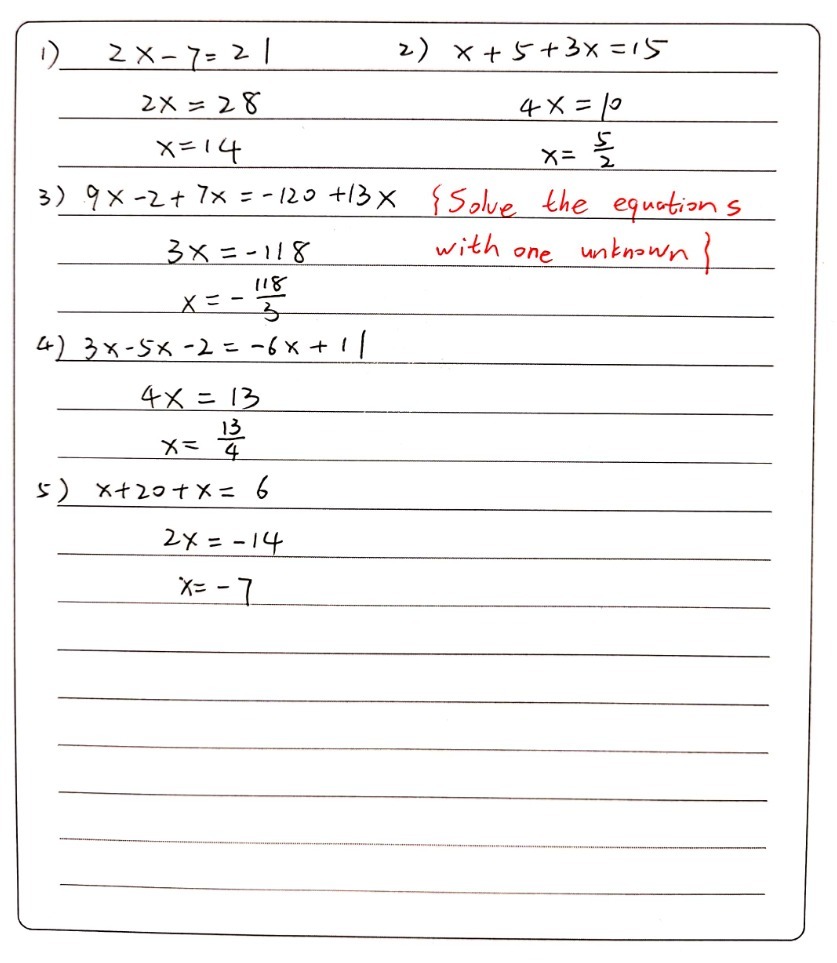 1) 2x-7=21
2x=28
x=14
2) x+5+3x=15
4x=10
x=5/2
3) 9x-2+7x=-120+13x
{Solve the equations
with one unknown}
3x=-118
x=-118/3
4) 3x-5x-2=-6x+11
4x=13
x=13/4
5) x+20+x=6
2x=-14
x=-7